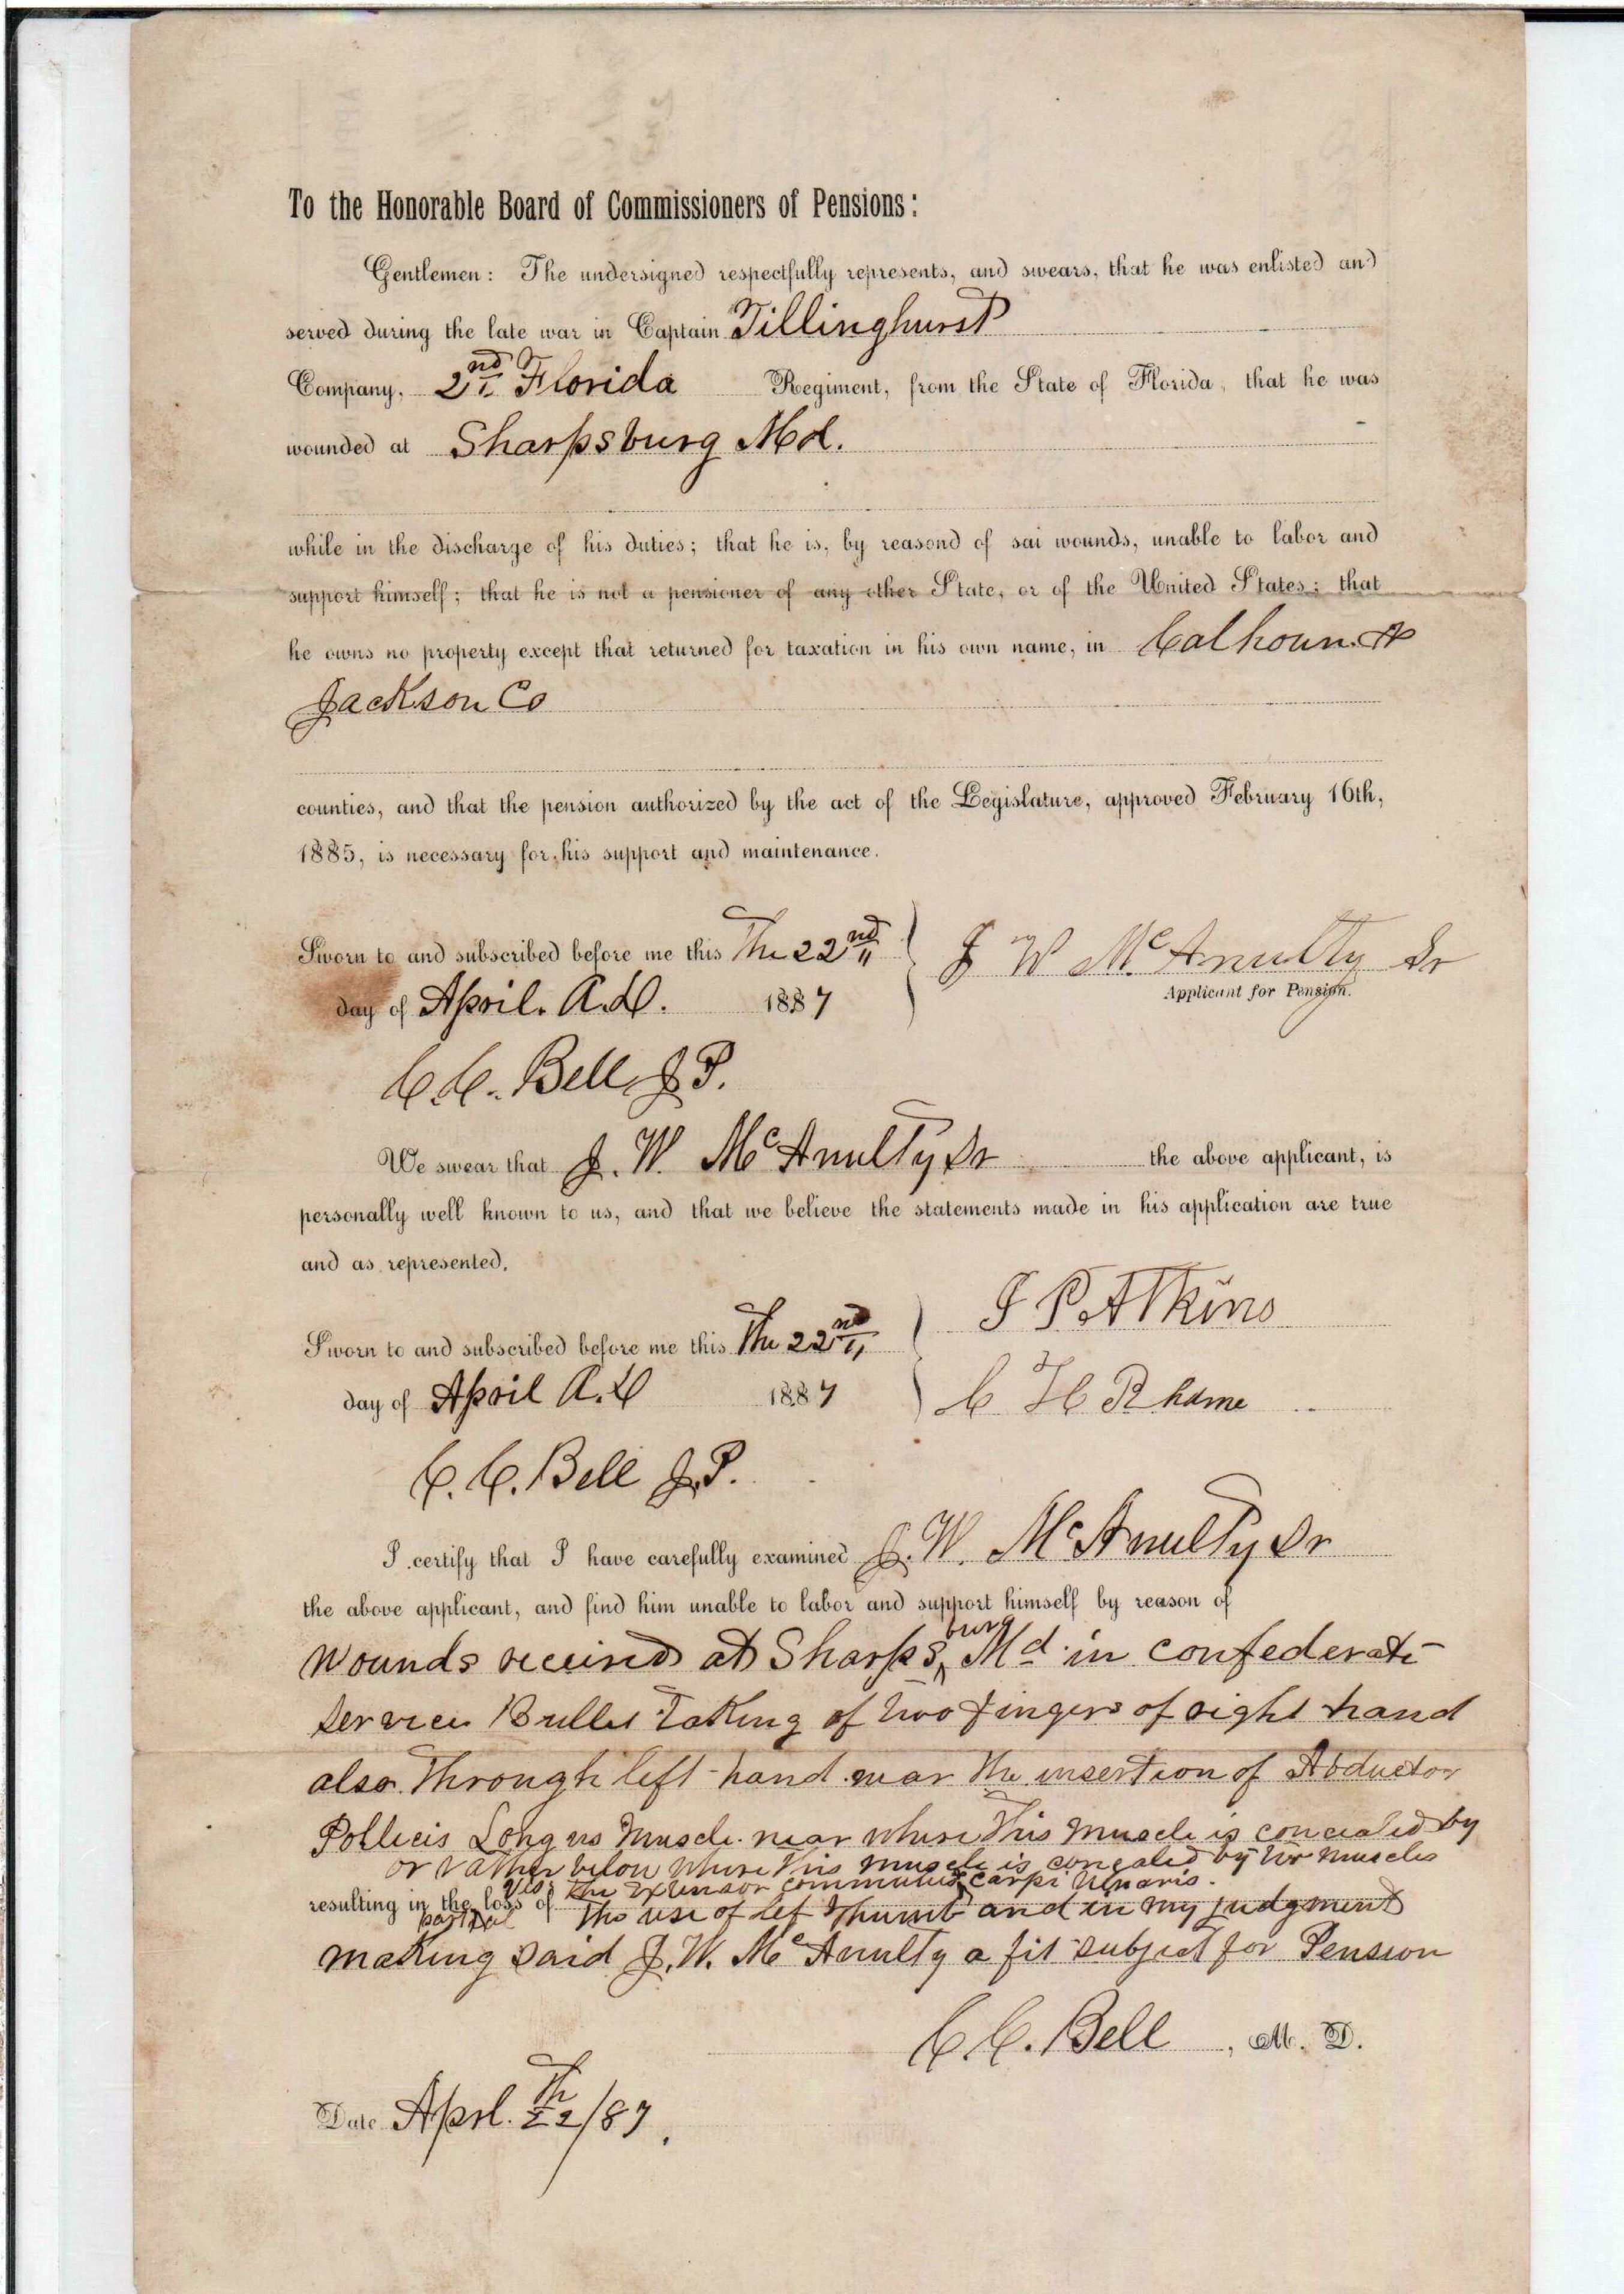 To the Honorable Board of Commissioners of Pensions:
Gentlemen: The undersigned respectfully represents, and swears, that he was enlisted and
served during the late war in Captain Tillinghurst
Company, 2nd Florida Regiment, from the State of Florida, that he was
wounded at Sharpsburg Md.
while in the discharge of his duties; that he is, by reasond of sai wounds, unable to labor and
support himself; that he is not a pensioner of any other State, or of the United States; that
he owns no property except that returned for taxation in his own name, in Calhoun &
Jackson Co
counties, and that the pension authorized by the act of the Legislature, approved February 16th,
1885, is necessary for his support and maintenance.
Sworn to and subscribed before me this The 22nd
J W McAnulty Sr
Applicant for Pension.
day of April. A.D. 1887
C.C. Bell J P.
We swear that J. W. McAnulty Sr the above applicant, is
personally well known to us, and that we believe the statements made in his application are true
and as represented.
J P Atkins
Sworn to and subscribed before me this The 22nd
day of April A.D 1887
C H Rhame
C. C. Bell J.P.
I certify that I have carefully examined J. W. McAnulty Sr
the above applicant, and find him unable to labor and support himself by reason of
wounds received at Sharpsburg Md. in confederate
service Bullet taking of two fingers of right hand
also through left hand near the insertion of Abductor
Pollicis Longus Muscle near where this muscle is concealed by
or rather below where this muscle is concealed by two muscles
Vis: the Extensor communis, carpi Ulnaris.
resulting in the loss of the use of lef Thumb and in my judgment
partial
making said J. W. McAnulty a fit subject for Pension
C. C. Bell, M. D.
Date Aprl. 22th/87.